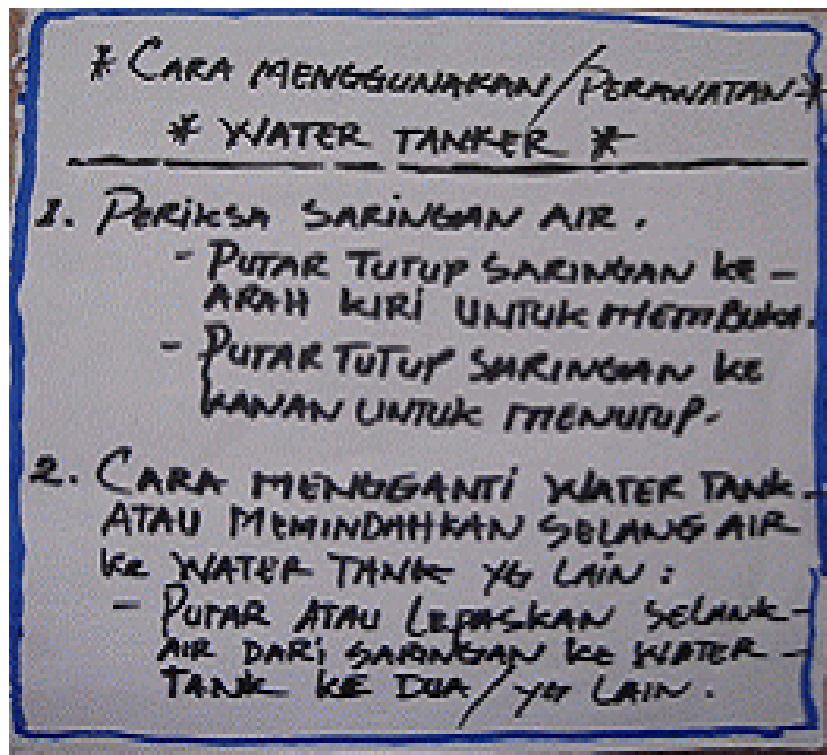 * CARA MENGGUNAKAN/PERAWATAN *
* WATER TANKER *
1. PERIKSA SARINGAN AIR.
- PUTAR TUTUP SARINGAN KE -
ARAH KIRI UNTUK MEMBUKA.
- PUTAR TUTUP SARINGAN KE
KANAN UNTUK MENUTUP.
2. CARA MENGGANTI WATER TANK -
ATAU MEMINDAHKAN SELANG AIR
KE WATER TANK YG LAIN :
- PUTAR ATAU LEPASKAN SELANK -
AIR DARI SARINGAN KE WATER -
TANK KE DUA / YG LAIN.